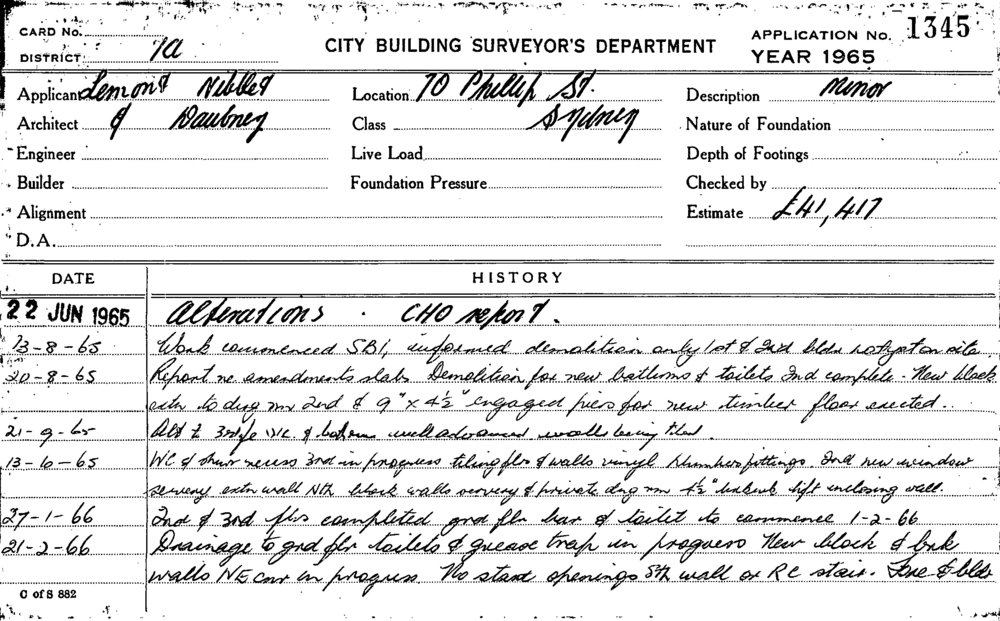 CARD No.
DISTRICT 7A
CITY BUILDING SURVEYOR'S DEPARTMENT
APPLICATION No. 1345
YEAR 1965
Applicant Lemont Nibblet
Location 70 Phillip St.
Description Minor
Architect & Daubney
Class Sydney
Nature of Foundation
Engineer
Live Load
Depth of Footings
Builder
Foundation Pressure
Checked by
Alignment
Estimate £41,417
D.A.
DATE HISTORY
22 JUN 1965 Alterations. CHO report.
13-8-65 Work commenced SBI, informed demolition only 1st & 2nd bldr not yet on site
20-8-65 Report re amendments slab. Demolition for new bathrms & toilets 2nd complete. New block
extn to dng rm 2nd & 9" x 4½" engaged piers for new timber floor erected.
21-9-65 3rd WC. & well advanced walls being tiled.
13-10-65 WC & shwr recess 3rd in progress tiling flrs & walls vinyl plumbers fittings. 2nd new window
servery extn wall Nth block walls servery & private dng rm 4½" lift enclosing wall.
27-1-66 2nd & 3rd flrs completed grd flr bar & toilet to commence 1-2-66
21-2-66 Drainage to grd flr toilets & grease trap in progress New block & brk
walls NE cnr in progress. No start openings Sth wall or RC stair. &
C of S 882